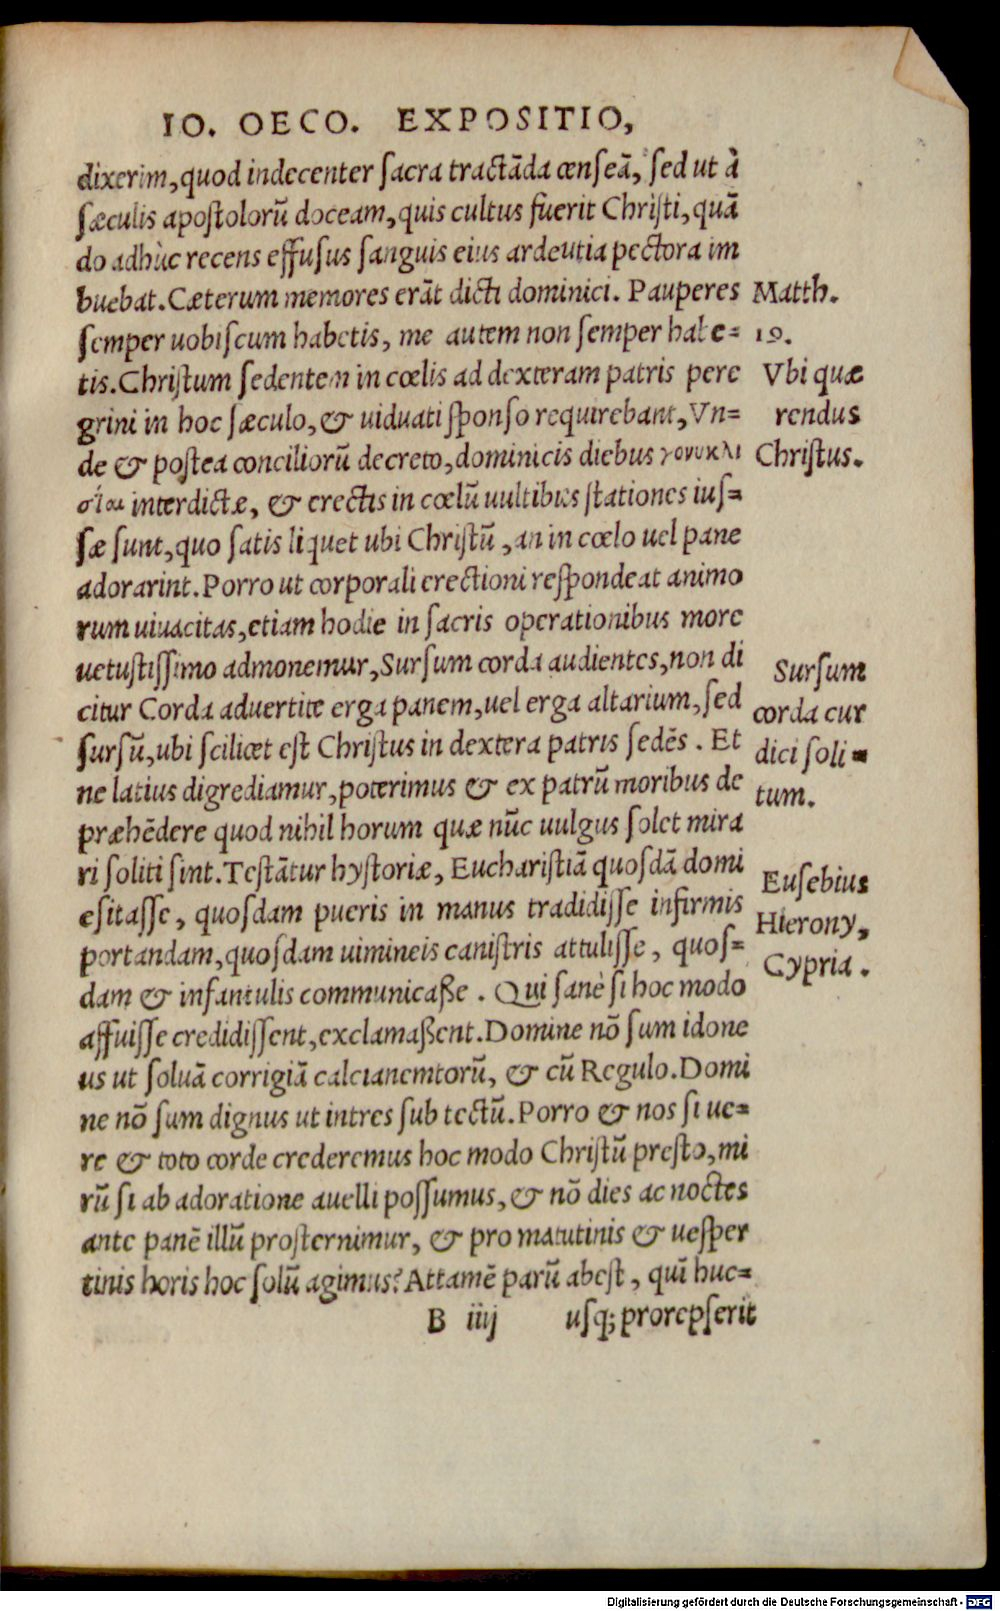 IO. OECO. EXPOSITIO,
dixerim, quod indecenter sacra tractāda censeā, sed ut à
sæculis apostolorū doceam, quis cultus fuerit Christi, quā
do adhùc recens effusus sanguis eius ardeutia pectora im
buebat. Cæterum memores erāt dicti dominici. Pauperes
semper uobiscum habetis, me autem non semper habe=
tis. Christum sedentem in cœlis ad dexteram patris pere
grini in hoc sæculo, & uiduati sponso requirebant, Vn=
de & postea conciliorū decreto, dominicis diebus γονυκλι
σίαι interdictæ, & erectis in cœlū uultibus stationes ius=
sæ sunt, quo satis liquet ubi Christū, an in cœlo uel pane
adorarint. Porro ut corporali erectioni respondeat animo
rum uiuacitas, etiam hodie in sacris operationibus more
uetustissimo admonemur, Sursum corda audientes, non di
citur Corda aduertite erga panem, uel erga altarium, sed
sursū, ubi scilicet est Christus in dextera patris sedēs. Et
ne latius digrediamur, poterimus & ex patrū moribus de
præhēdere quod nihil horum quæ nūc uulgus solet mira
ri soliti sint. Testātur hystoriæ, Eucharistiā quosdā domi
esitasse, quosdam pueris in manus tradidisse infirmis
portandam, quosdam uimineis canistris attulisse, quos=
dam & infantulis communicaße. Qui sanè si hoc modo
affuisse credidissent, exclamaßent. Domine nō sum idone
us ut soluā corrigiā calcianemtorū, & cū Regulo. Domi
ne nō sum dignus ut intres sub tectū. Porro & nos si ue=
re & toto corde crederemus hoc modo Christū presto, mi
rū si ab adoratione auelli possumus, & nō dies ac noctes
ante panē illū prosternimur, & pro matutinis & uesper
tinis horis hoc solū agimus? Attamē parū abest, quī huc=
B iiij usq; prorepserit
Matth.
19.
Vbi quæ
rendus
Christus.
Sursum
corda cur
dici soli=
tum.
Eusebius
Hierony,
Cypria.
Digitalisierung gefördert durch die Deutsche Forschungsgemeinschaft - DFG